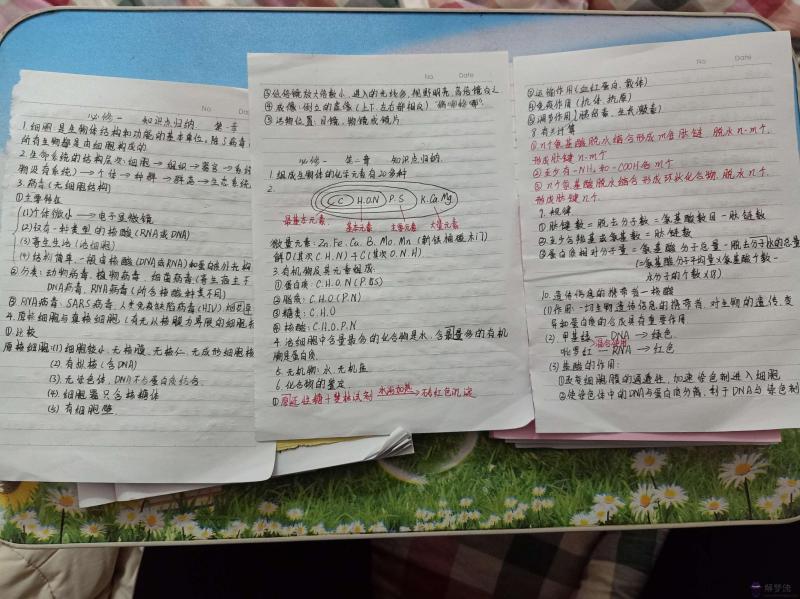 No.
必修一 知识点归纳 第一章
1.细胞是生物体结构和功能的基本单位。除了病毒
所有生物都是由细胞构成的。
2.生命系统的结构层次:细胞→组织→器官→系统
物没有系统)→个体→种群→群落→生态系统
3.病毒(无细胞结构)
①主要特征
(1)个体微小→电子显微镜
(2)仅有一种类型的核酸(RNA或DNA)
(3)寄生生活(活细胞)
(4)结构简单,一般由核酸(DNA或RNA)和蛋白质外壳构
②分类:动物病毒、植物病毒、细菌病毒(寄生宿主于
DNA病毒、RNA病毒(所含核酸种类不同)
③RNA病毒:SARS病毒、人类免疫缺陷病毒(HIV)
4.原核细胞与真核细胞(有无以核膜为界限的细胞核
①比较
原核细胞:(1)细胞较小,无核膜、无核仁、无成形细胞核
(2)有拟核(含DNA)
(3)无染色体,DNA不与蛋白质结合
(4)细胞器只含核糖体
(5)有细胞壁
No Date
③低倍镜放大倍数小,进入的光线多,视野明亮,高倍镜反之
④成像:倒立的虚像(上下、左右都相反)
⑤污物位置:目镜、物镜或镜片
必修一 第二章 知识点归纳
1.组成生物体的化学元素有20多种
2.
C H.O.N P.S K.Ca.Mg
最基本元素
基本元素
主要元素
大量元素
微量元素:Zn、Fe、Ca、B、Mo、Mn(新铁 碰木门)
鲜O(其次C.H.N)干C(其次O.N.H)
3.有机物及其元素组成
①蛋白质:C.H.O.N(P.S)
②脂质:C.H.O(P.N)
③糖类:C.H.O
④核酸:C.H.O.P.N
4.活细胞中含量最多的化合物是水,含量最多的有机
物是蛋白质。
5.无机物:水、无机盐
6.化合物的鉴定
①还原性糖+斐林试剂 水浴加热→砖红色沉淀
No. Date
③运输作用(血红蛋白、载体)
④免疫作用(抗体、抗原)
⑤调节作用(胰岛素、生长激素)
8.有关计算
①n个氨基酸脱水缩合形成m条肽链,脱水n-m个,
形成肽键n-m个
②至少有-NH₂和-COOH各m个
③n个氨基酸脱水缩合形成环状化合物,脱水n个,
形成肽键n个
9.规律
①肽键数=脱去分子数=氨基酸数目-肽链数
②至少含羧基或氨基数=肽链数
③蛋白质相对分子量=氨基酸分子总量-脱去分水的总量
(=氨基酸分子平均量×氨基酸个数-
水分子的个数×18)
10.遗传信息的携带者—核酸
(1)作用:一切生物遗传信息的携带者,对生物的遗传、变
异和蛋白质的合成具有重要作用
(2).甲基绿—DNA→绿色
混合使用
吡罗红—RNA→红色
(3)盐酸的作用:
①改变细胞膜的通透性,加速染色剂进入细胞
②使染色体中的DNA与蛋白质分离,利于DNA与染色剂
解梦佬